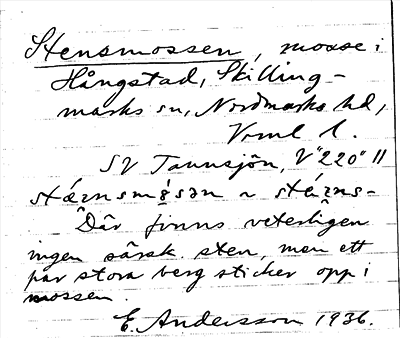 Stensmossen, mosse i
Hångstad, Skilling-
marks sn, Nordmarks hd,
Vrml l.
SV Tannsjön, V "220" ||
stǽnsmɔ̀sən ~ stǽns-
Där finns veterligen
ingen särsk. sten, men ett
par stora berg sticker opp i
mossen.
E. Andersson 1936.